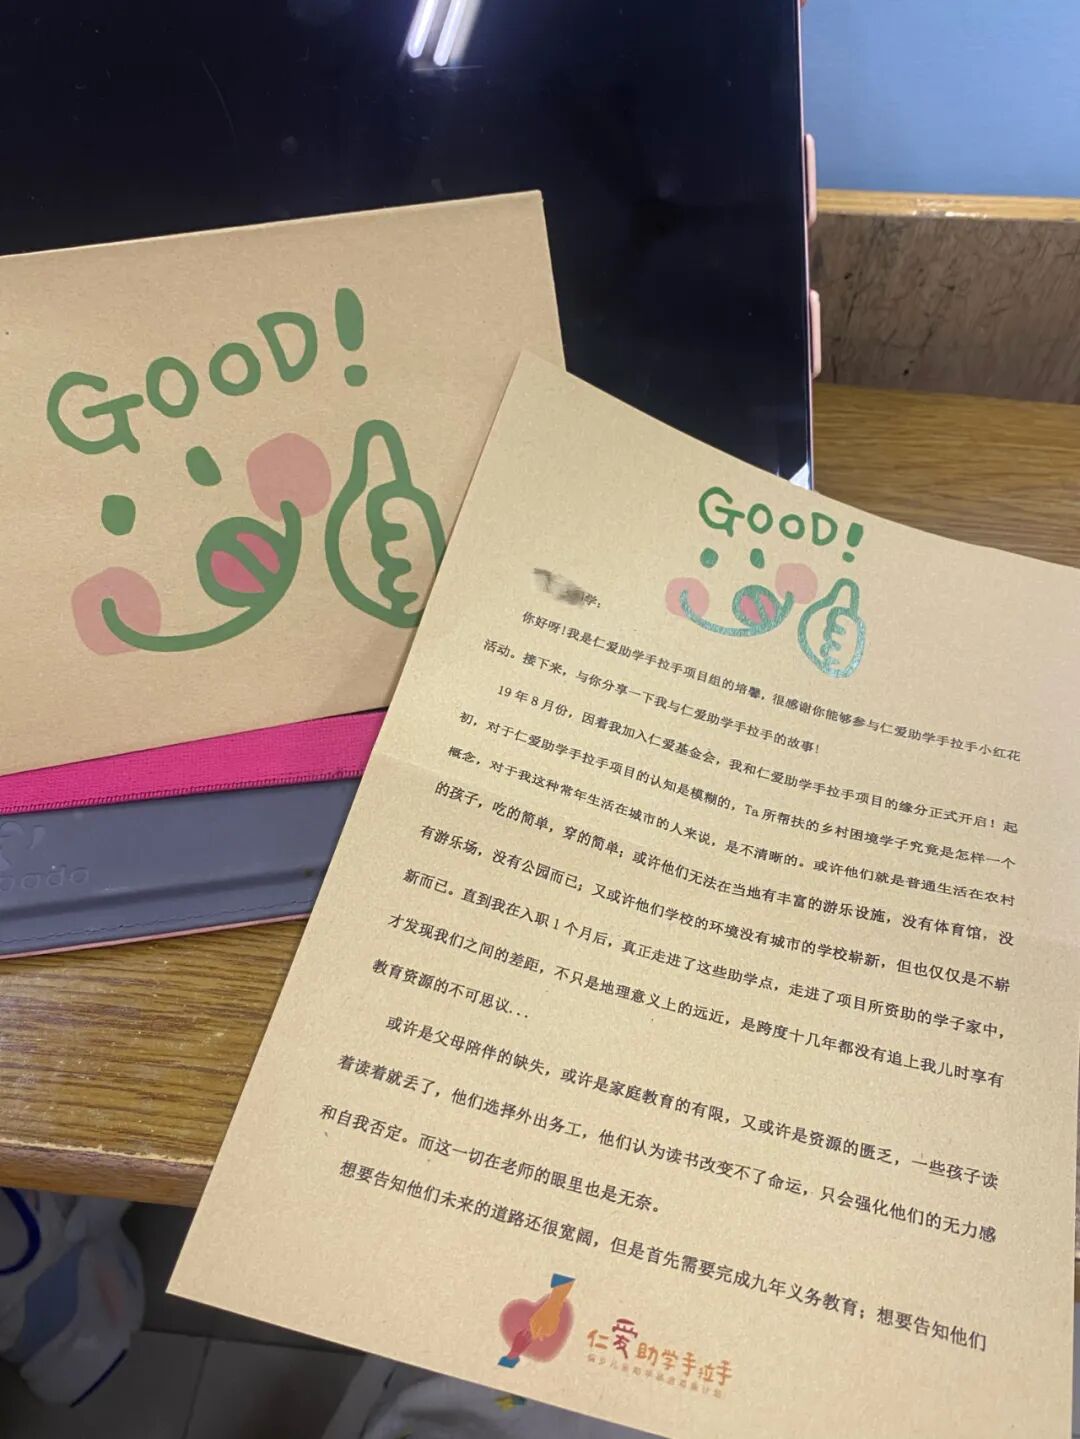 GOOD!
GOOD!
学：
你好呀！我是仁爱助学手拉手项目组的培馨，很感谢你能够参与仁爱助学手拉手小红花
活动。接下来，与你分享一下我与仁爱助学手拉手的故事！
19年8月份，因着我加入仁爱基金会，我和仁爱助学手拉手项目的缘分正式开启！起
初，对于仁爱助学手拉手项目的认知是模糊的，Ta所帮扶的乡村困境学子究竟是怎样一个
概念，对于我这种常年生活在城市的人来说，是不清晰的。或许他们就是普通生活在农村
的孩子，吃的简单，穿的简单；或许他们无法在当地有丰富的游乐设施，没有体育馆，没
有游乐场，没有公园而已；又或许他们学校的环境没有城市的学校崭新，但也仅仅是不崭
新而已。直到我在入职1个月后，真正走进了这些助学点，走进了项目所资助的学子家中，
才发现我们之间的差距，不只是地理意义上的远近，是跨度十几年都没有追上我儿时享有
教育资源的不可思议...
或许是父母陪伴的缺失，或许是家庭教育的有限，又或许是资源的匮乏，一些孩子读
着读着就丢了，他们选择外出务工，他们认为读书改变不了命运，只会强化他们的无力感
和自我否定。而这一切在老师的眼里也是无奈。
想要告知他们未来的道路还很宽阔，但是首先需要完成九年义务教育；想要告知他们
仁爱助学手拉手